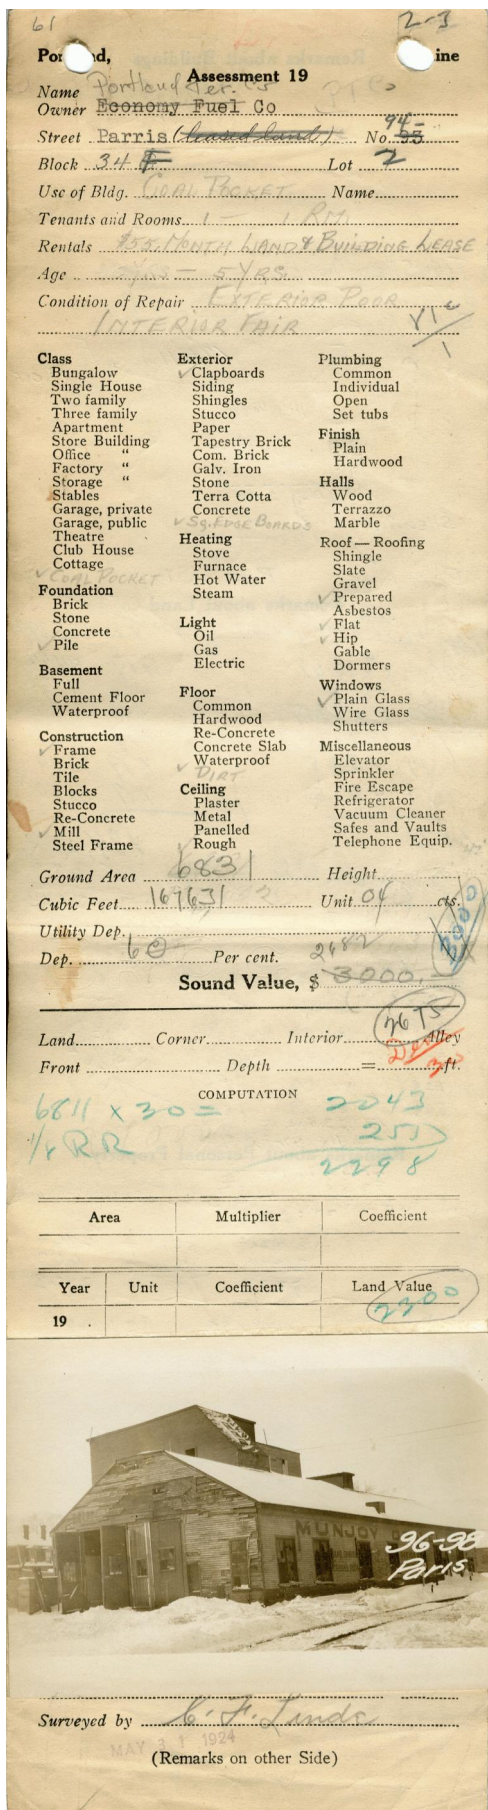 61 2-3
Portland, Maine
Assessment 19
Name Portland Ter. Co
Owner Economy Fuel Co
Street Parris (leased land) No. 94- 93
Block 34 F Lot 2
Use of Bldg. COAL POCKET Name
Tenants and Rooms 1 — 1 RM.
Rentals $55. MONTH LAND & BUILDING LEASE
Age — 5 YRS.
Condition of Repair EXTERIOR POOR
INTERIOR FAIR
Class
Bungalow
Single House
Two family
Three family
Apartment
Store Building
Office "
Factory "
Storage "
Stables
Garage, private
Garage, public
Theatre
Club House
Cottage
✓ COAL POCKET
Foundation
Brick
Stone
Concrete
✓ Pile
Basement
Full
Cement Floor
Waterproof
Construction
✓ Frame
Brick
Tile
Blocks
Stucco
Re-Concrete
✓ Mill
Steel Frame
Exterior
✓ Clapboards
Siding
Shingles
Stucco
Paper
Tapestry Brick
Com. Brick
Galv. Iron
Stone
Terra Cotta
Concrete
✓ SQ. EDGE BOARDS
Heating
Stove
Furnace
Hot Water
Steam
Light
Oil
Gas
Electric
Floor
Common
Hardwood
Re-Concrete
Concrete Slab
Waterproof
✓ DIRT
Ceiling
Plaster
Metal
Panelled
✓ Rough
Plumbing
Common
Individual
Open
Set tubs
Finish
Plain
Hardwood
Halls
Wood
Terrazzo
Marble
Roof — Roofing
Shingle
Slate
Gravel
✓ Prepared
Asbestos
✓ Flat
✓ Hip
Gable
Dormers
Windows
✓ Plain Glass
Wire Glass
Shutters
Miscellaneous
Elevator
Sprinkler
Fire Escape
Refrigerator
Vacuum Cleaner
Safes and Vaults
Telephone Equip.
Ground Area 6831 Height
Cubic Feet 167631 Unit 04 cts.
3000
Utility Dep.
Dep. 60 Per cent. 2682
Sound Value, $ 3000.—
2675
Land Corner Interior Alley
Front Depth = ft.
COMPUTATION
6811 x 30 = 2043
1/8 RR 255
2298
Area Multiplier Coefficient
Year Unit Coefficient Land Value
19 . 2300
MUNJOY
96-98
Paris
Surveyed by C. F. Linde
MAY 31 1924
(Remarks on other Side)